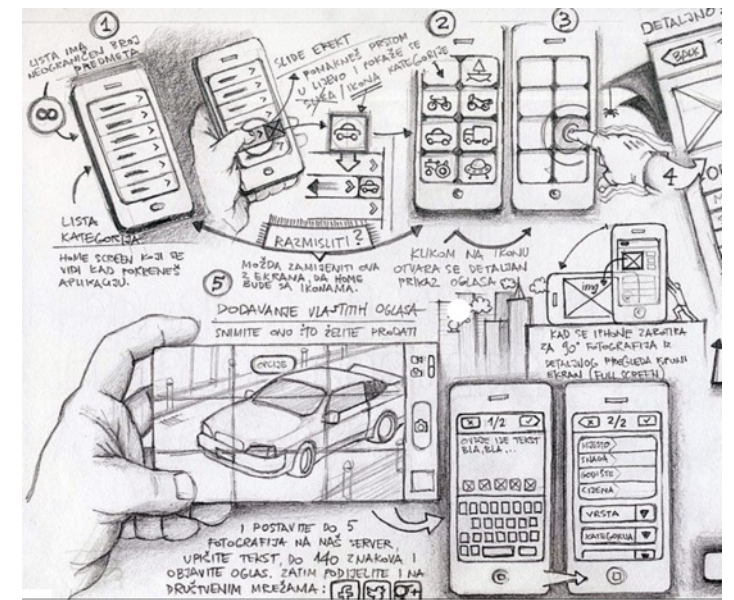 1
LISTA IMA
NEOGRANIČEN BROJ
PREDMETA
∞
LISTA
KATEGORIJA
HOME SCREEN KOJI SE
VIDI KAD POKRENEŠ
APLIKACIJU.
SLIDE EFEKT
POMAKNEŠ PRSTOM
U LIJEVO I POKAŽE SE
SLIKA/IKONA KATEGORIJE
RAZMISLITI?
MOŽDA ZAMIJENITI OVA
2 EKRANA, DA HOME
BUDE SA IKONAMA.
2
3
KLIKOM NA IKONU
OTVARA SE DETALJAN
PRIKAZ OGLASA
DETALJNO
BACK
4
img
KAD SE IPHONE ZAROTIRA
ZA 90° FOTOGRAFIJA IZ
DETALJNOG PREGLEDA ISPUNI
EKRAN (FULL SCREEN)
5
DODAVANJE VLASTITIH OGLASA
SNIMITE ONO ŠTO ŽELITE PRODATI
OPCIJE
I POSTAVITE DO 5
FOTOGRAFIJA NA NAŠ SERVER,
UPIŠITE TEKST, DO 140 ZNAKOVA I
OBJAVITE OGLAS. ZATIM PODIJELITE I NA
DRUŠTVENIM MREŽAMA:
X 1/2
OVDJE IDE TEKST
BLA, BLA...
X 2/2
MJESTO
SNAGA
GODIŠTE
CIJENA
VRSTA
KATEGORIJA